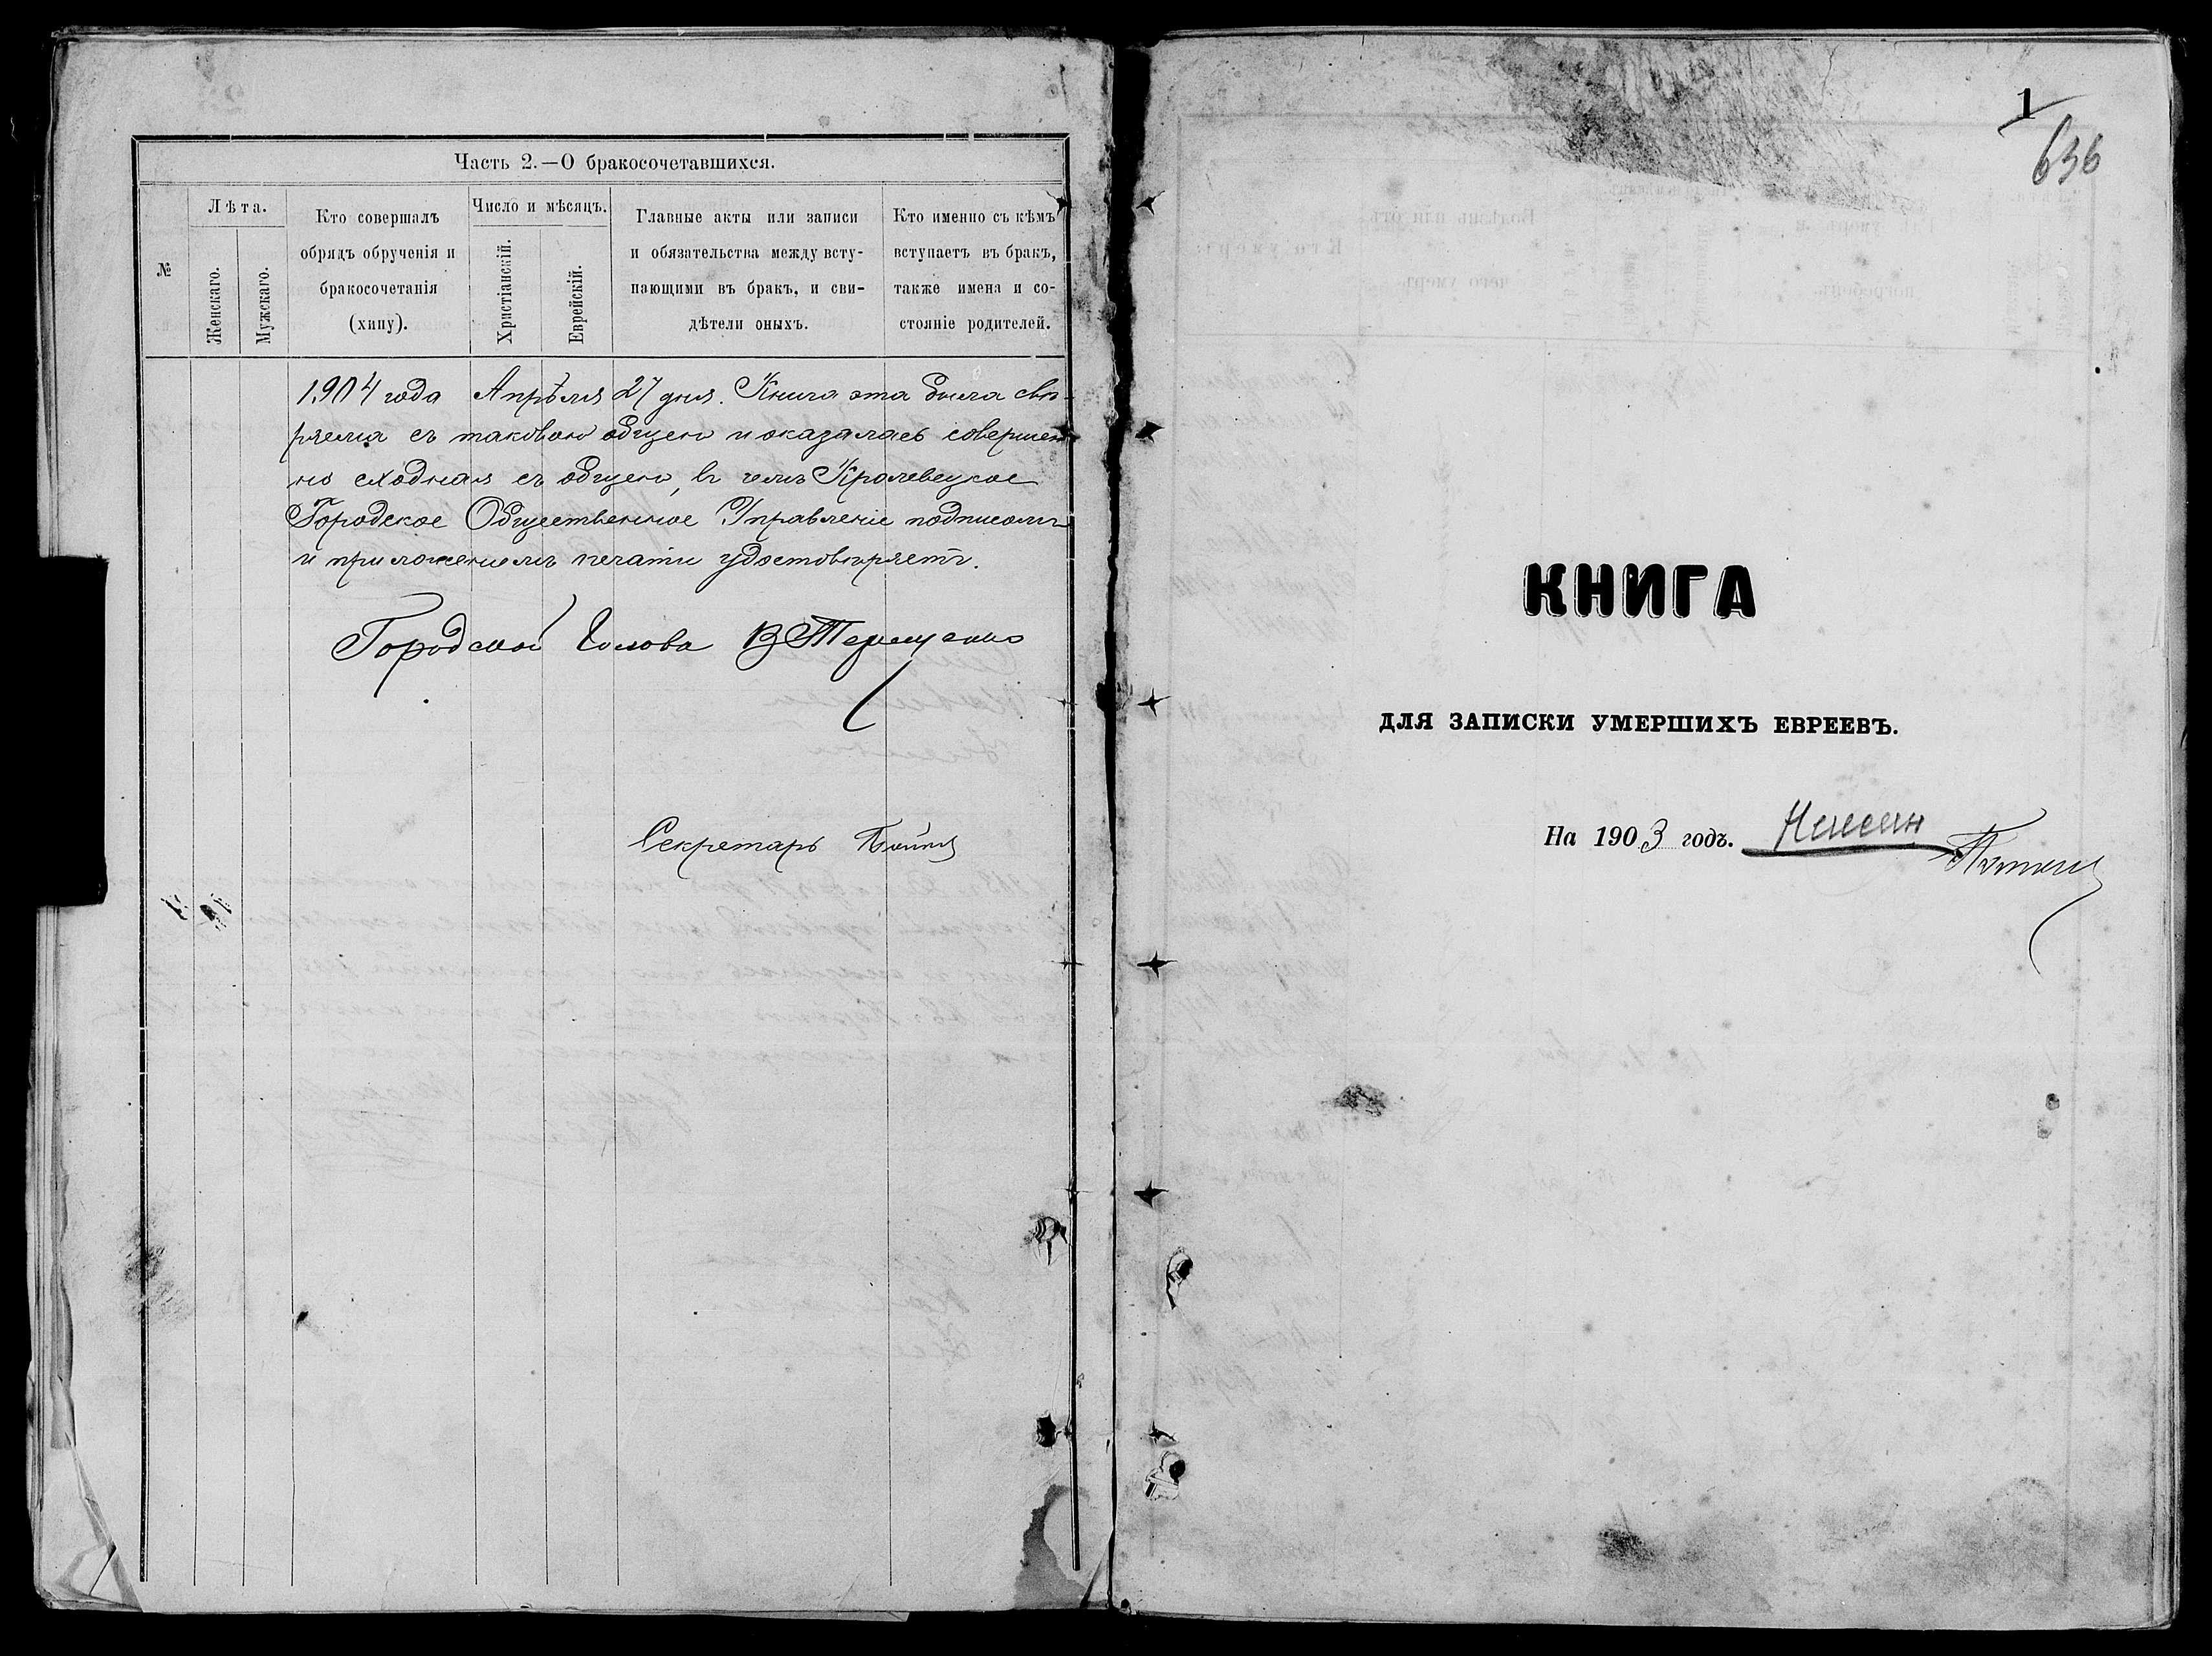 Часть 2.—О бракосочетавшихся.
№
Лѣта.
Женскаго.
Мужскаго.
Кто совершалъ
обрядъ обрученія и
бракосочетанія
(хипу).
Число и мѣсяцъ.
Христіанскій.
Еврейскій.
Главные акты или записи
и обязательства между всту-
пающими въ бракъ, и сви-
дѣтели оныхъ.
Кто именно съ кѣмъ
вступаетъ въ бракъ,
также имена и со-
стояніе родителей.
1904 года Апрѣля 27 дня. Книга эта была свѣ-
ряема съ таковою общею и оказалась совершен
но сходная съ общею, въ чемъ Кролевецкое
Городское Общественное Управленіе подписомъ
и приложеніемъ печати удостовѣряетъ.
Городской Голова В Терещенко
Секретарь
1
636
КНИГА
ДЛЯ ЗАПИСКИ УМЕРШИХЪ ЕВРЕЕВЪ.
На 1903 годъ.